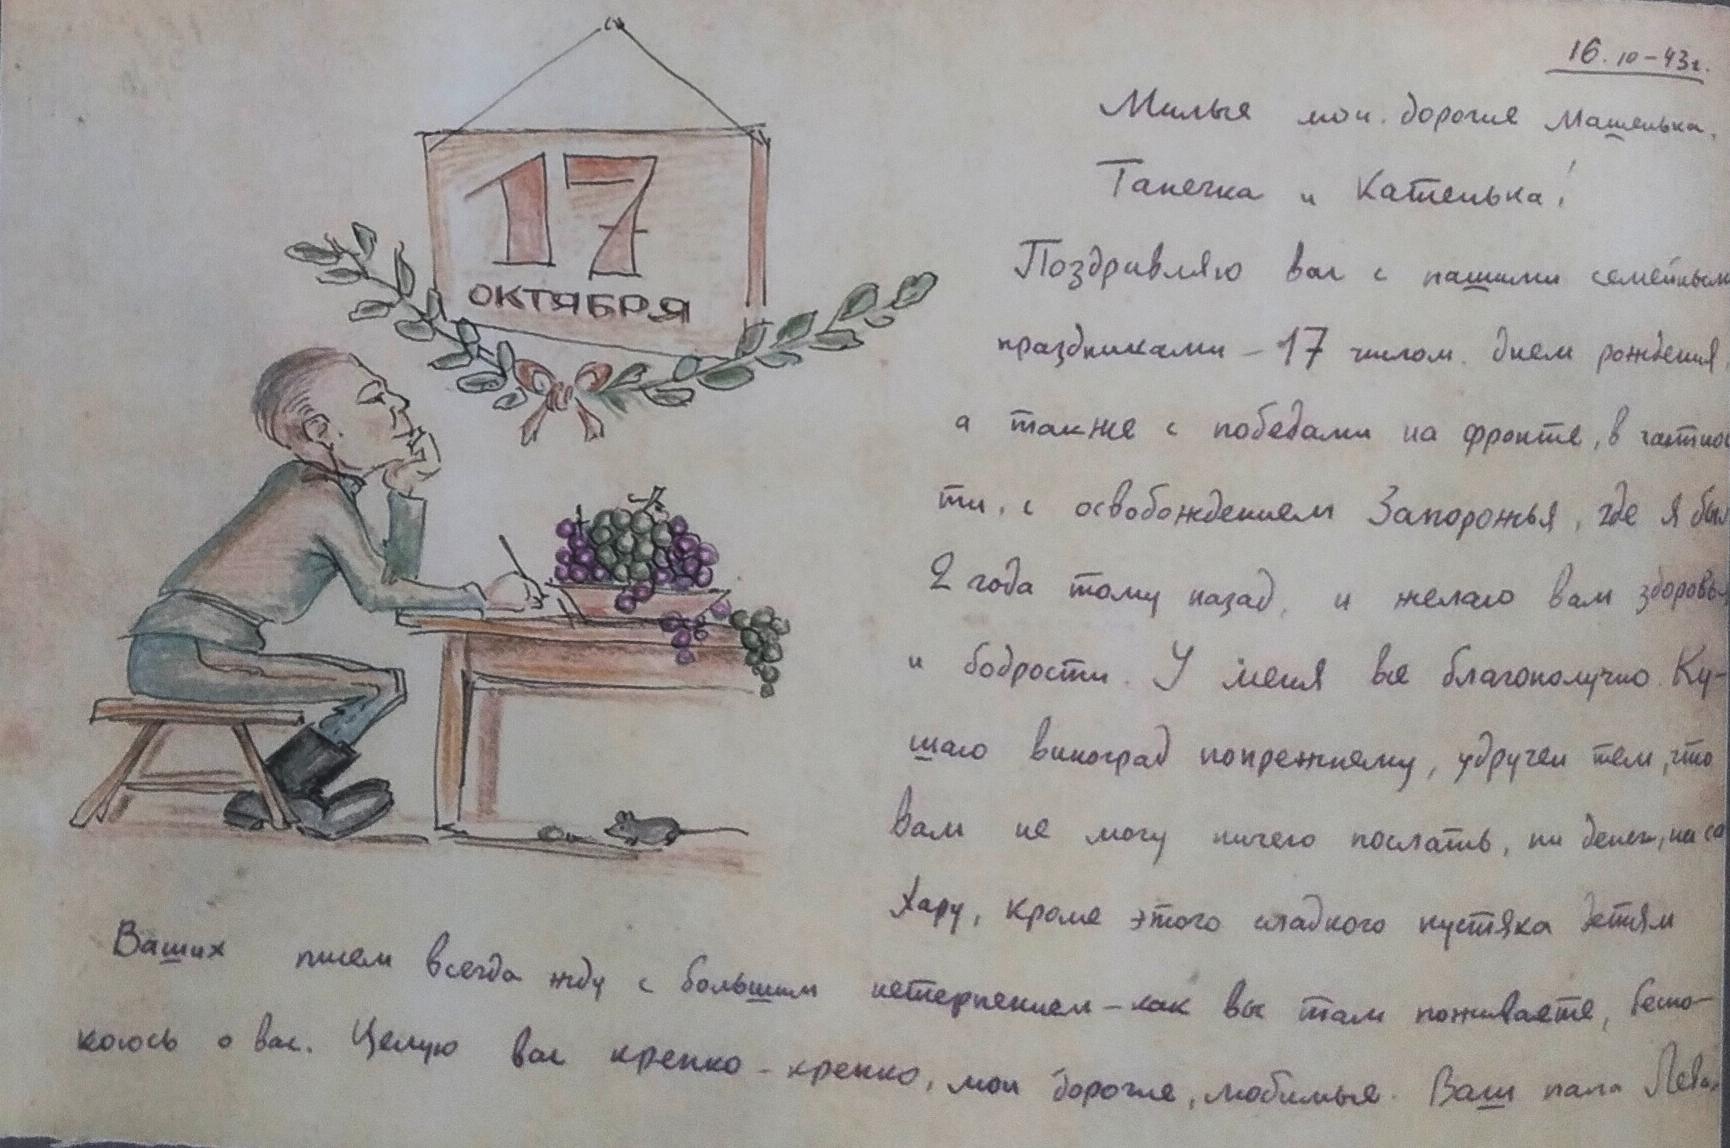 17
ОКТЯБРЯ
16.10-43г.
Милые мои. дорогие Машенька,
Танечка и Катенька!
Поздравляю вас с нашими семейными
праздниками - 17 числом. днем рождения,
а также с победами на фронте, в частнос
ти, с освобождением Запорожья, где я был
2 года тому назад, и желаю вам здоровья
и бодрости. У меня все благополучно. Ку-
шаю виноград попрежнему, удручен тем, что
вам не могу ничего послать, ни денег, ни са
хару, кроме этого сладкого пустяка детям
Ваших писем всегда жду с большим нетерпением - как вы там поживаете, беспо-
коюсь о вас. Целую вас крепко - крепко, мои дорогие, любимые. Ваш папа Лева.